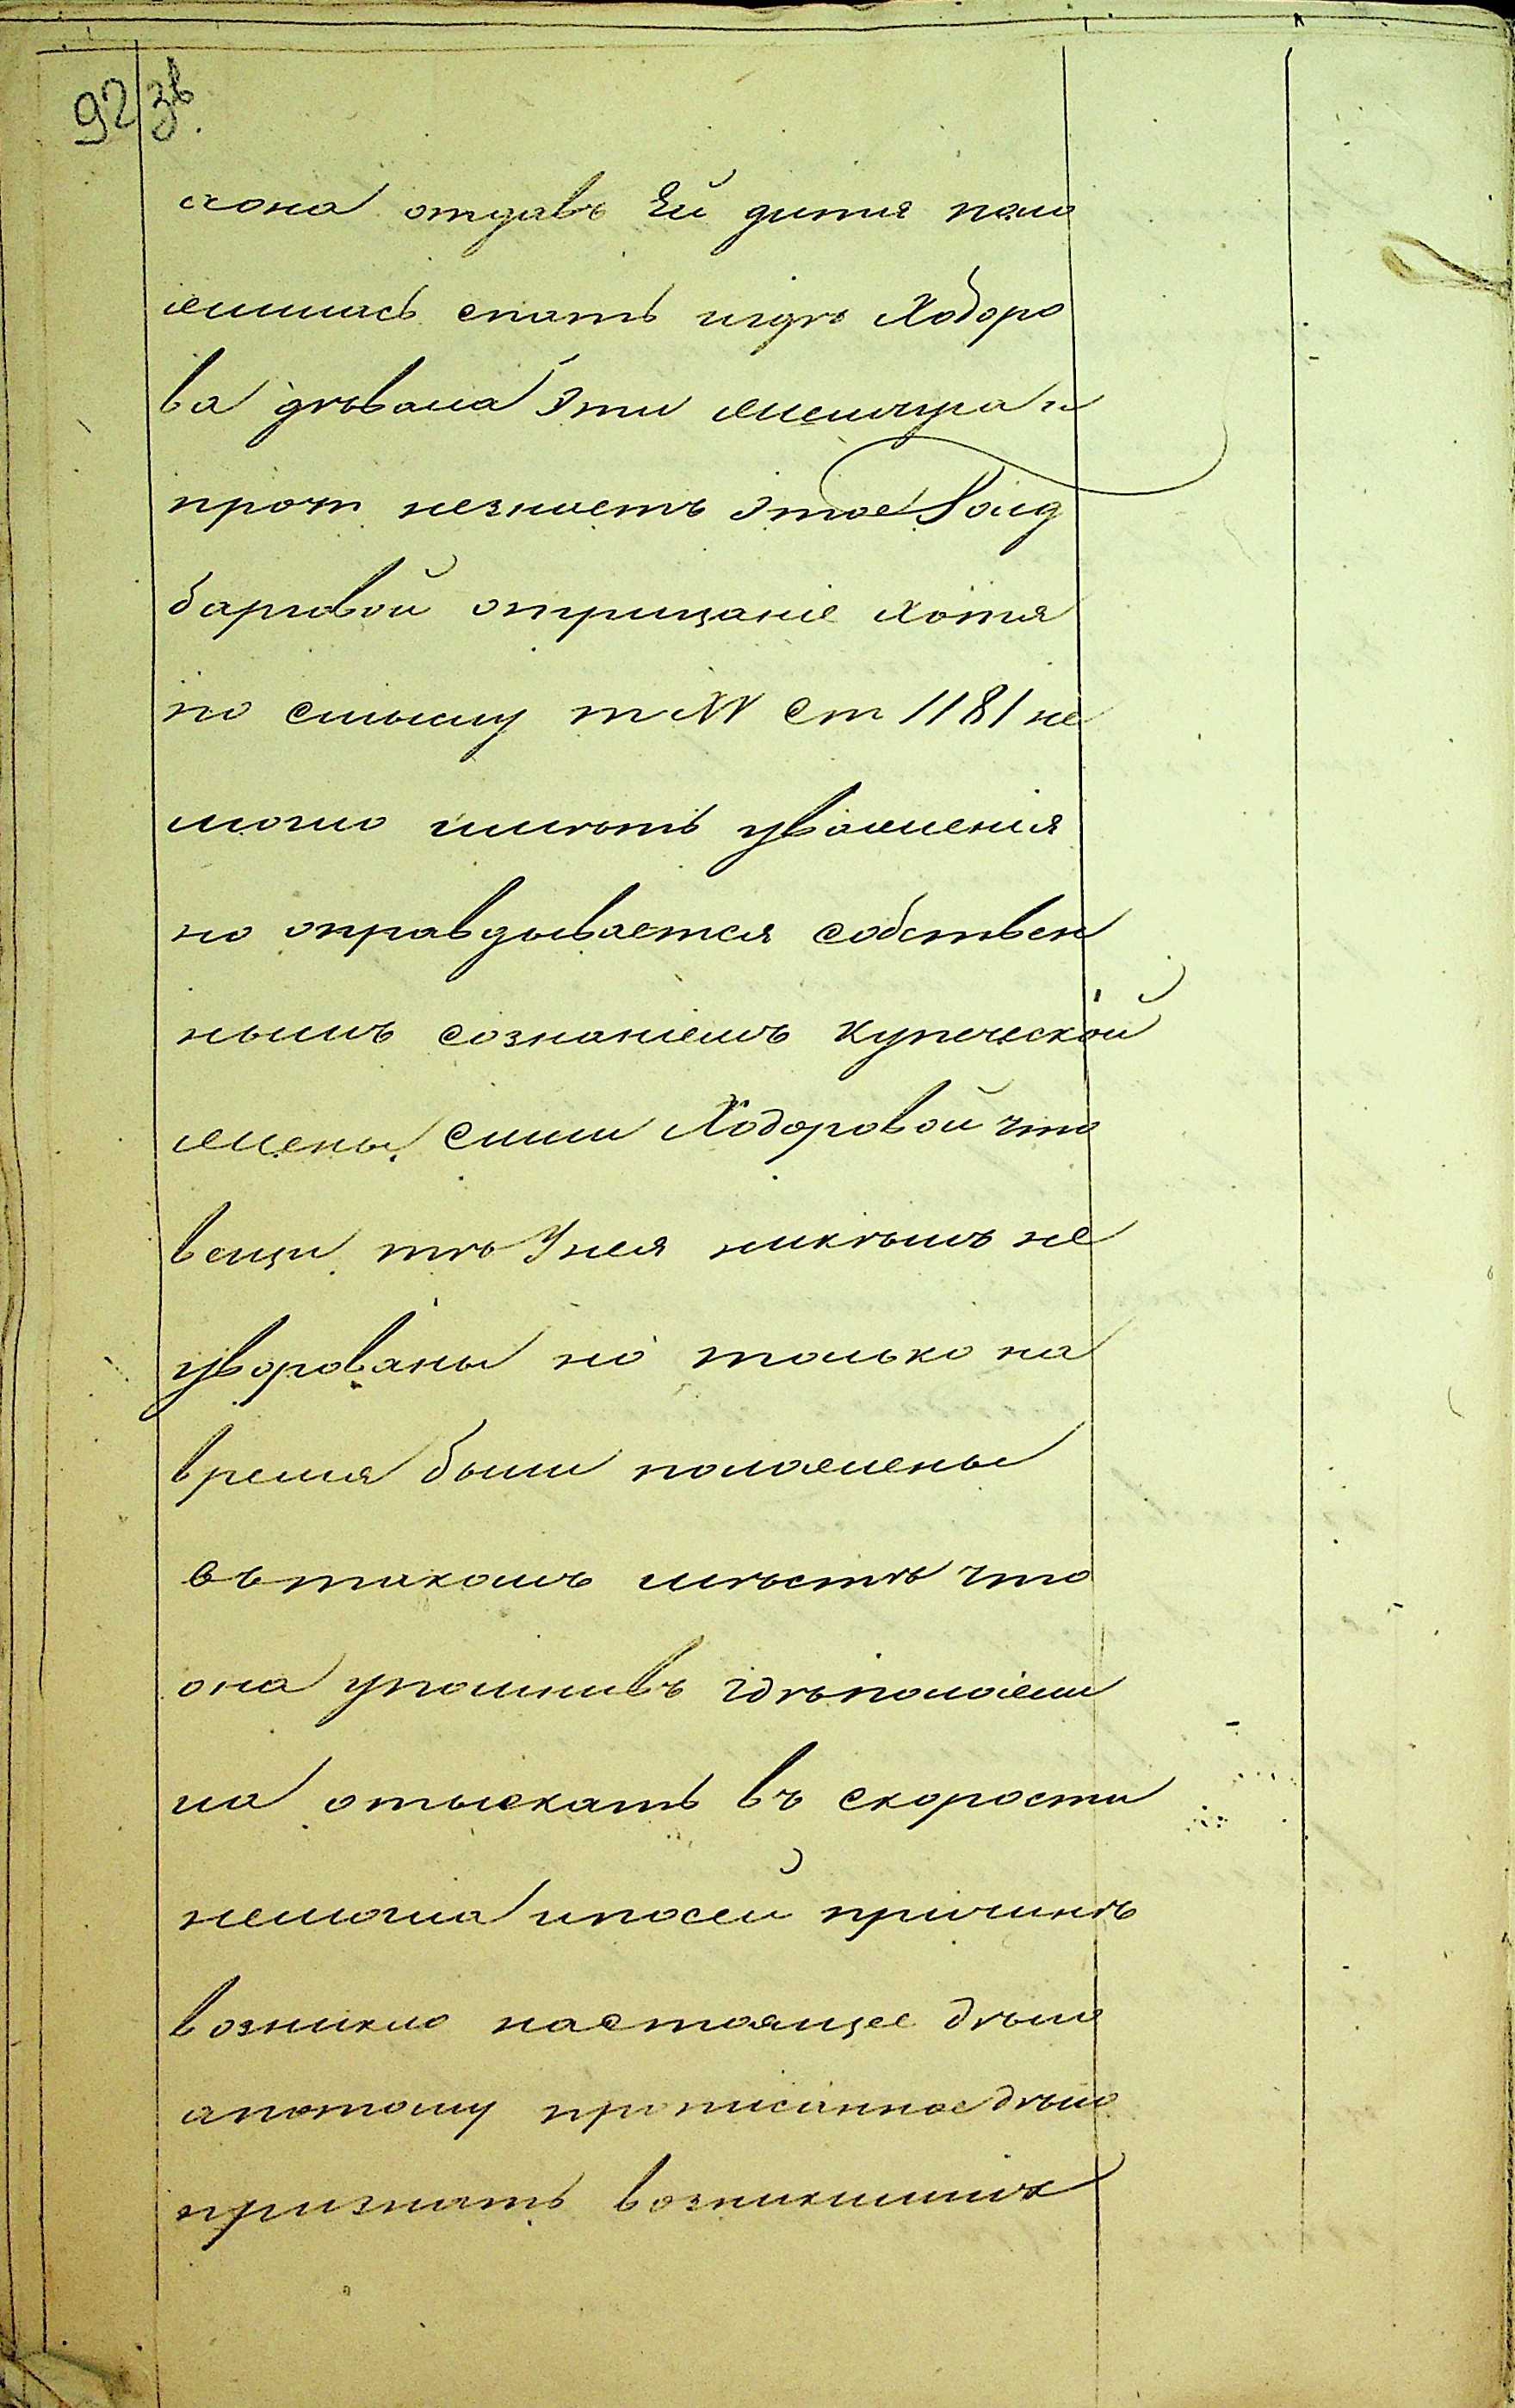 92 зв.
а она отдавъ Ей дитя поло
жилась спать и гдѣ Ходоро
ва дѣвала Эти жемчуга и
проч незнаетъ Этое
барговой отрицаніе хотя
по смыслу т XV Ст 1181 не
могло имѣть уваженія
но оправдывается собствен
нымъ сознаніемъ купеческой
жены Сими Ходоровой что
вещи тѣ Унея никѣмъ не
уворованы но только на
время были положены
въ такомъ мѣстѣ что
она упомнивъ гдѣ положи
ла отыскать въ скорости
немогла и посей причинѣ
возникло настоящее дѣло
а потому прописанное дѣло
признать возникшимъ